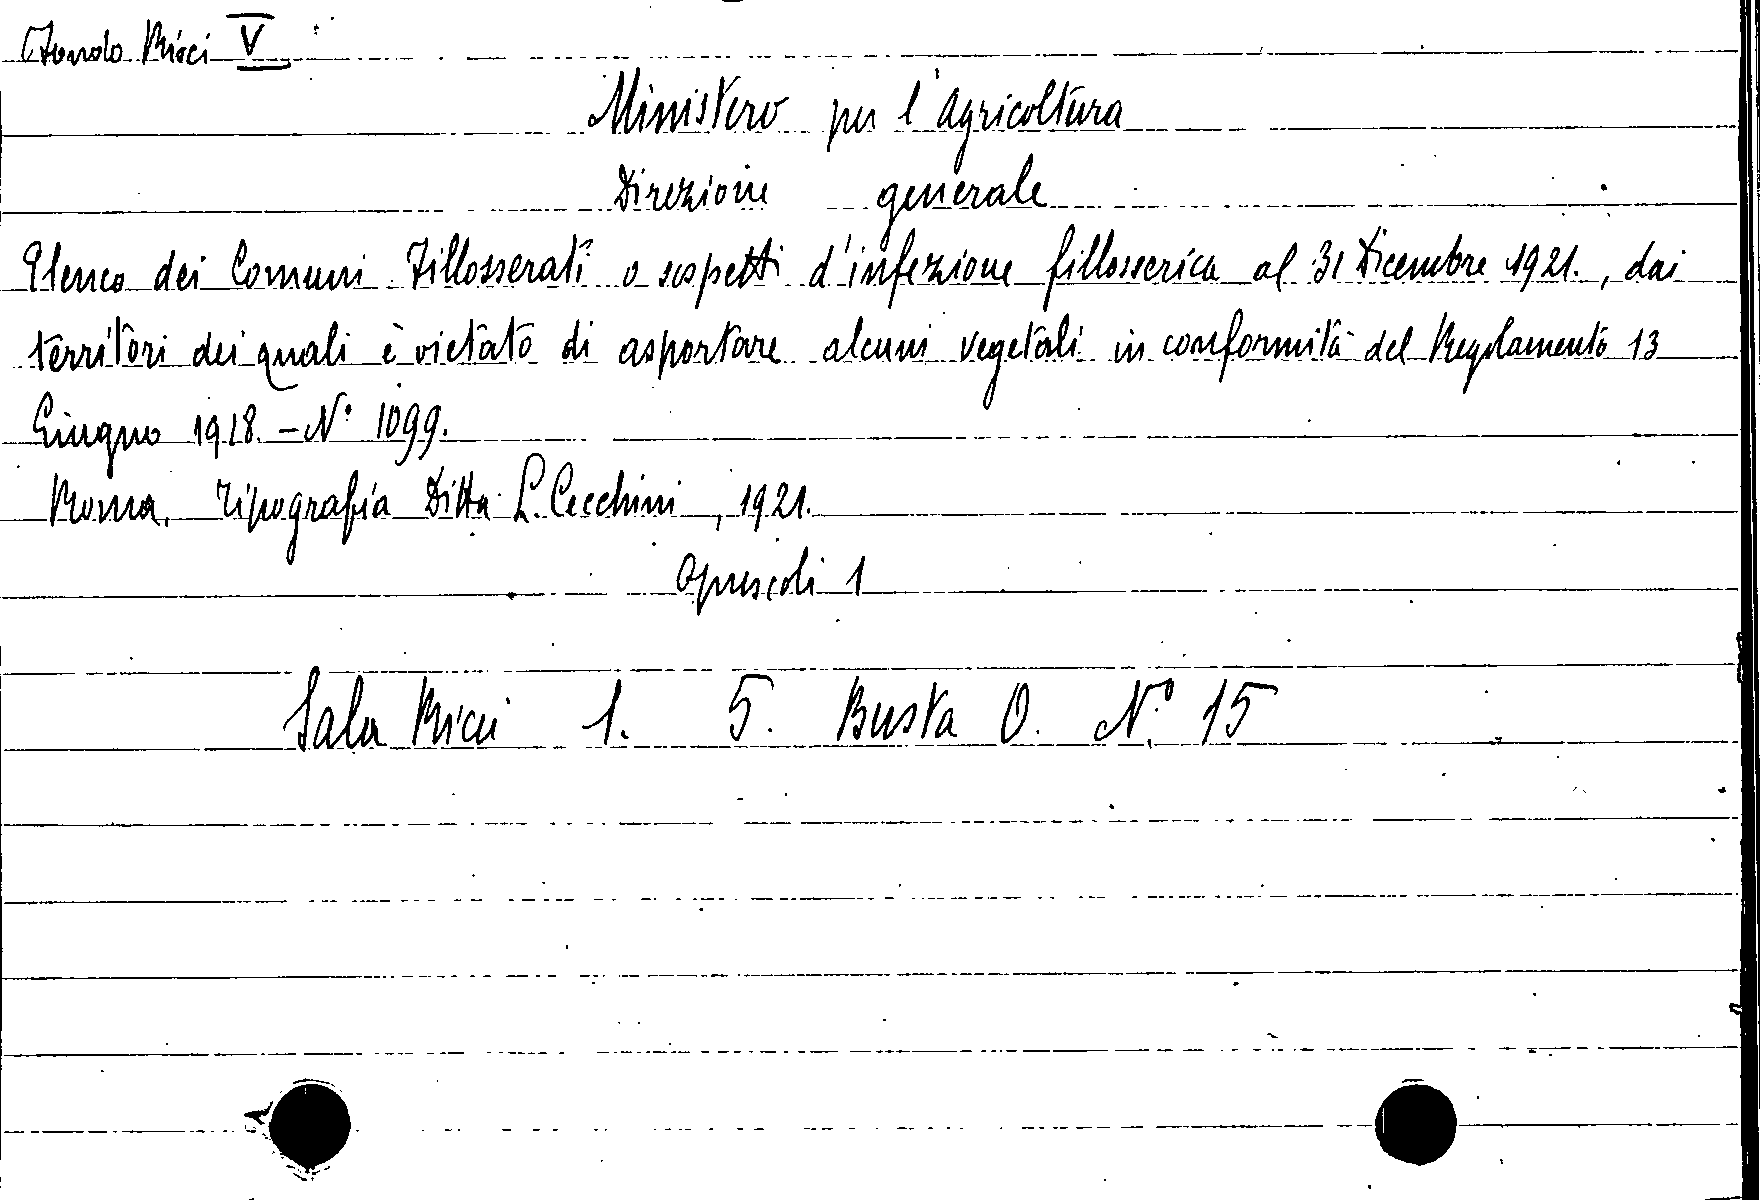 Fondo Ricci V
Ministero per l'agricoltura
Direzione generale
Elenco dei Comuni Fillosserati o sospetti d'infezione fillosserica al 31 Dicembre 1921., dai
territori dei quali è vietato di asportare alcuni vegetali in conformità del Regolamento 13
Giugno 1918. - N° 1099.
Roma, Tipografia Ditta L. Cecchini, 1921.
Opuscoli 1
Sala Ricci 1. 5. Busta O. N.° 15